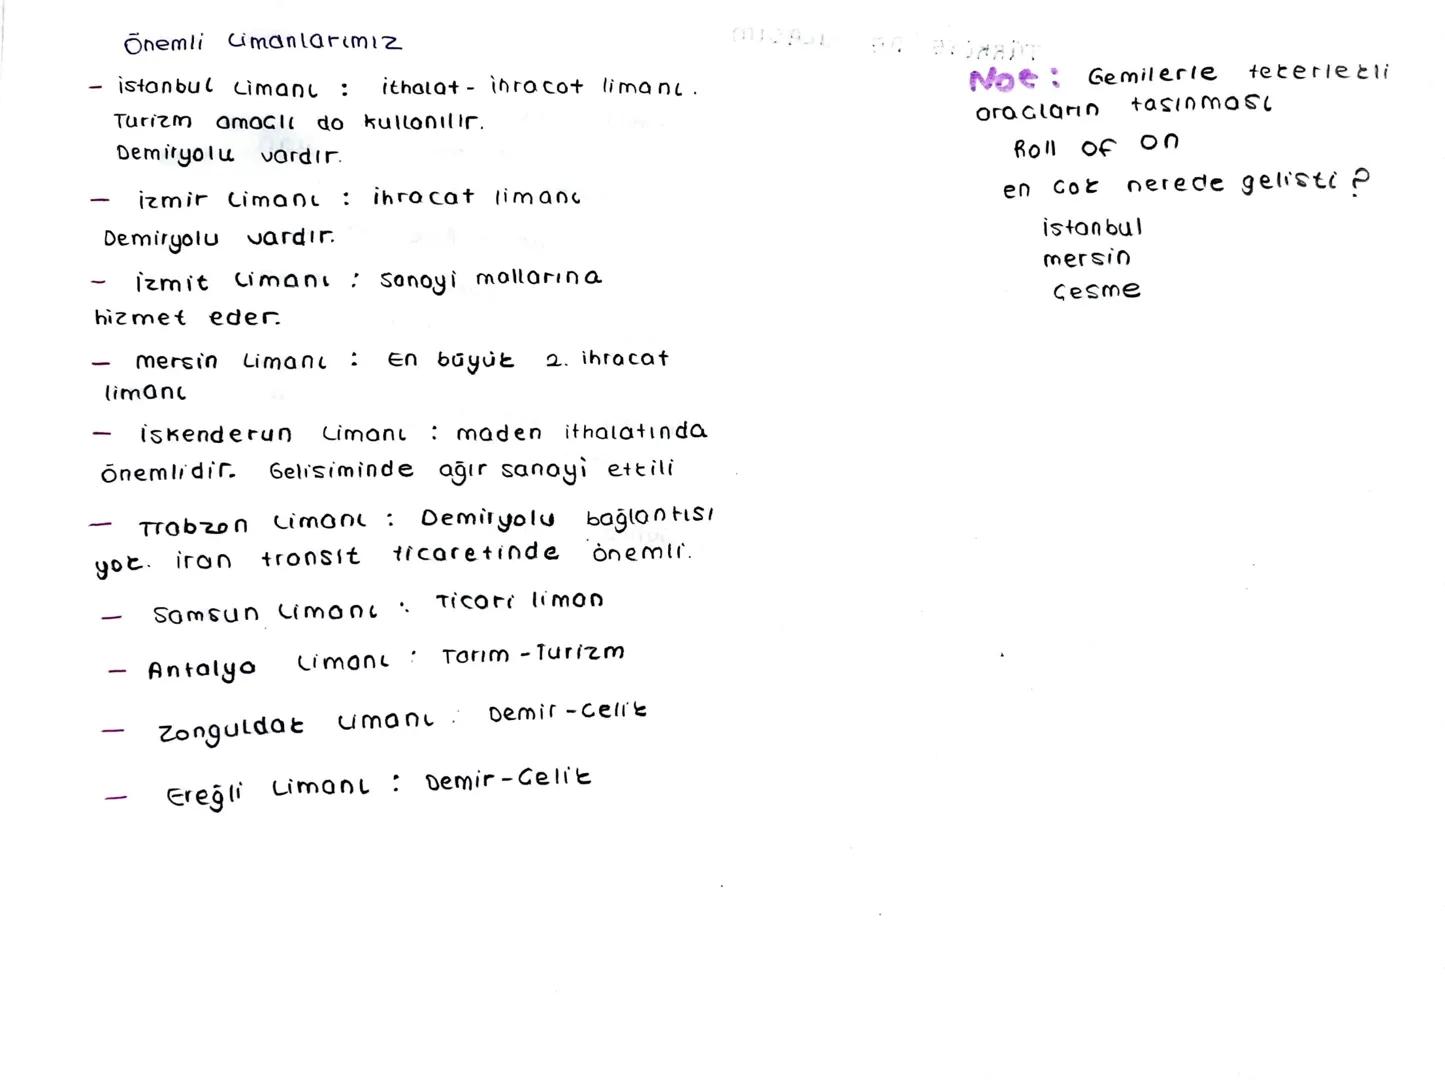 Önemli Limanlarımız
- istanbul Limanı : ithalat - ihracat limanı.
Turizm amaclı da kullanılır.
Demiryolu vardır.
- izmir Limanı : ihracat limanı
Demiryolu vardır.
- izmit Limanı : Sanayi mallarına
hizmet eder.
- mersin Limanı : En büyük 2. ihracat
limanı
- iskenderun Limanı : maden ithalatında
önemlidir. Gelisiminde ağır sanayi etkili
- Trabzon Limanı : Demiryolu bağlantısı
yok. iran transit ticaretinde önemli.
- Samsun Limanı : Ticari liman
- Antalya Limanı : Tarım - Turizm
- Zonguldak Limanı : Demir - Celik
- Ereğli Limanı : Demir - Celik
Not : Gemilerle tekerlekli
aracların tasınması
Roll of on
en cok nerede gelisti ?
istanbul
mersin
Cesme